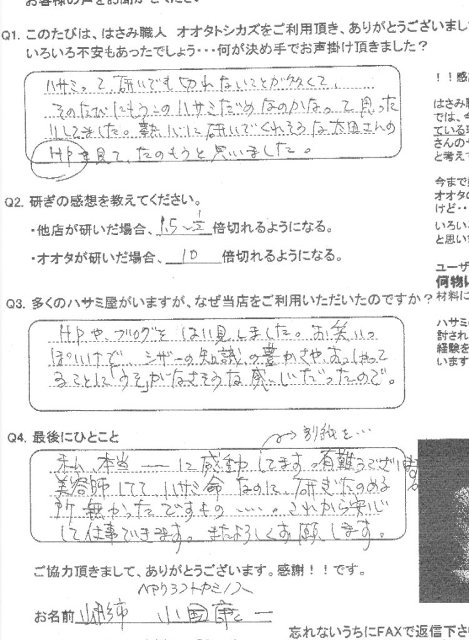 お客様の声をお聞かせください
Q1. このたびは、はさみ職人 オオタトシカズをご利用頂き、ありがとうございまし
いろいろ不安もあったでしょう・・・何が決め手でお声掛け頂きました？
ハサミって、研いでも切れないことが多くて、
そのたびにもうこのハサミだめなのかなって思った
りしてました。熱心に研いでくれそうな太田さんの
HPを見て、たのもうと思いました。
Q2. 研ぎの感想を教えてください。
・他店が研いだ場合、 倍切れるようになる。
・オオタが研いだ場合、 10 倍切れるようになる。
Q3. 多くのハサミ屋がいますが、なぜ当店をご利用いただいたのですか？
HPや、ブログをはい見しました。お笑いっ
ぽいけで、シザーの知識の豊かさや、おっしゃって
ることに「うそ」がなさそうな感じだったので。
Q4. 最後にひとこと
→別紙を…
私、本当ーーに感動してます。有難うございます。
美容師してて、ハサミ命なのに、研ぎたのめる
所無かったですもの……。これから安心
して仕事できます。またよろしくお願いします。
ご協力頂きまして、ありがとうございます。感謝！！です。
お名前
忘れないうちにFAXで返信下さ
！！感
はさみ
では、今
ている
さんの
と考え
今まで
オオタの
けど・・
いろい
と思い
ユーザ
何物に
材料に
ハサミ
討され
経験を
います